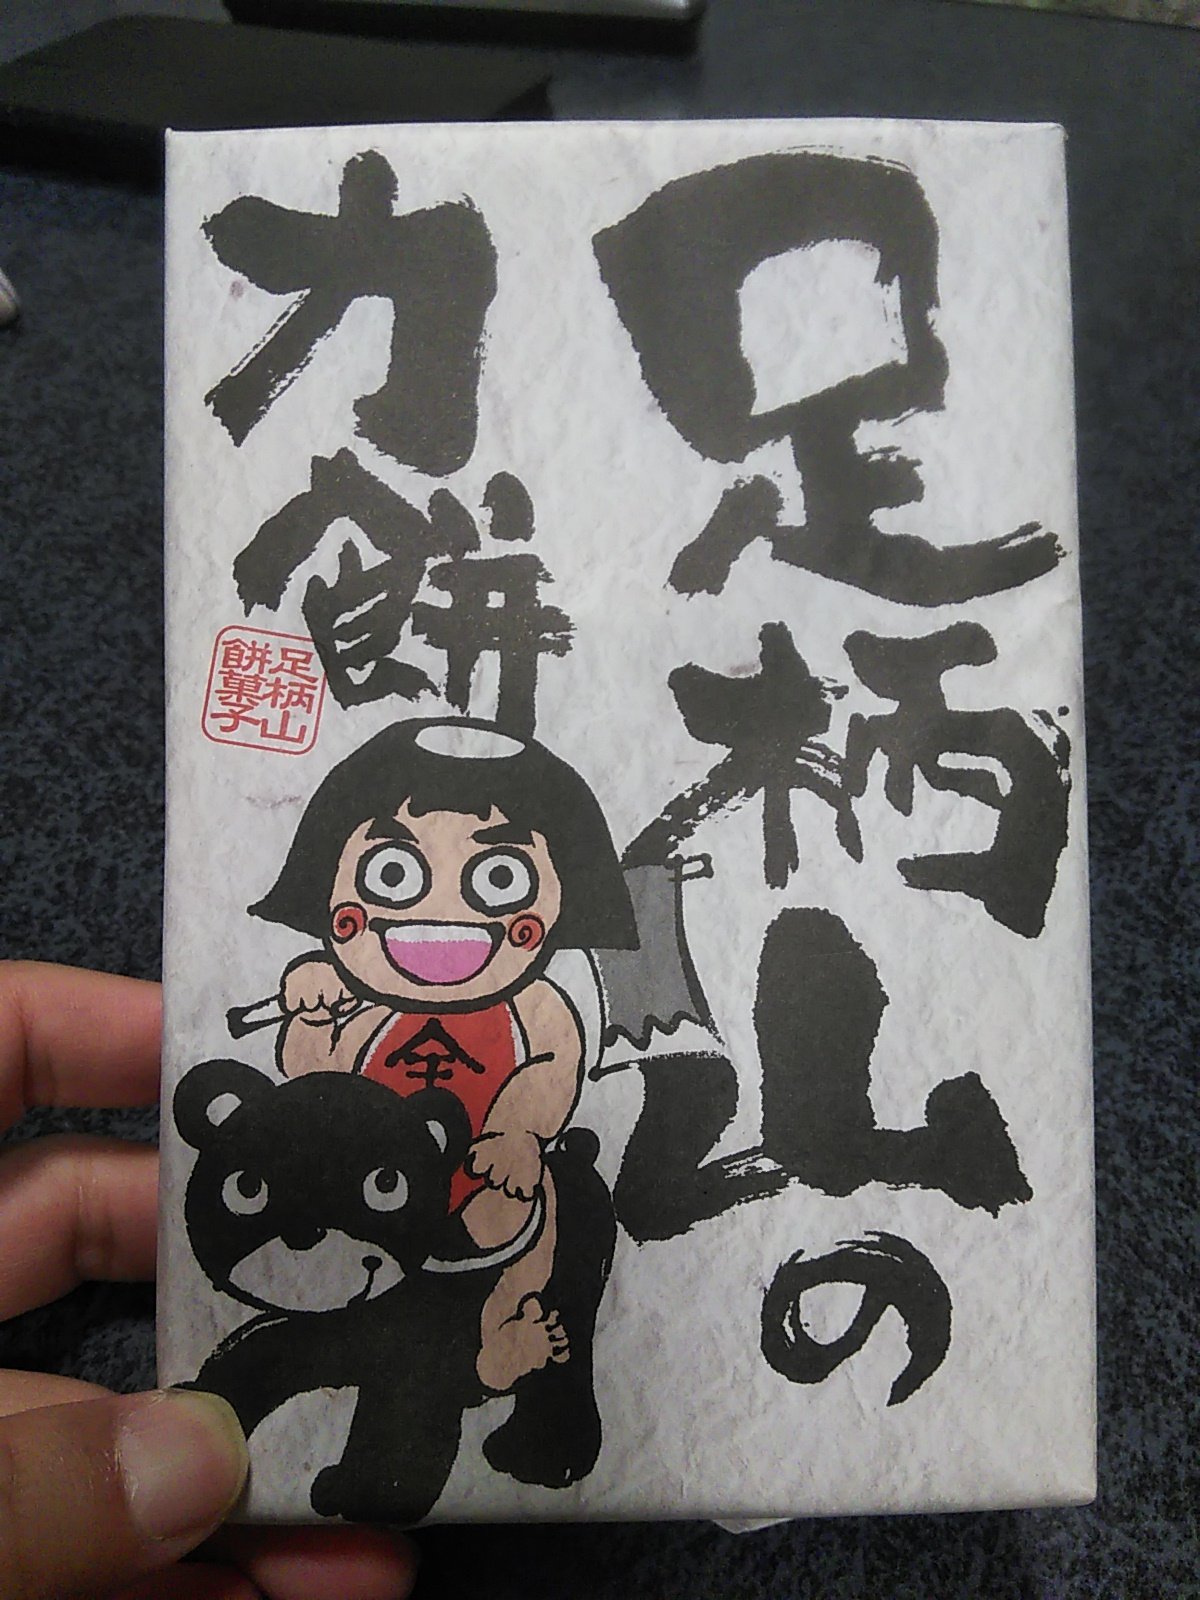 足柄山の
力餅
足柄山
餅菓子
金